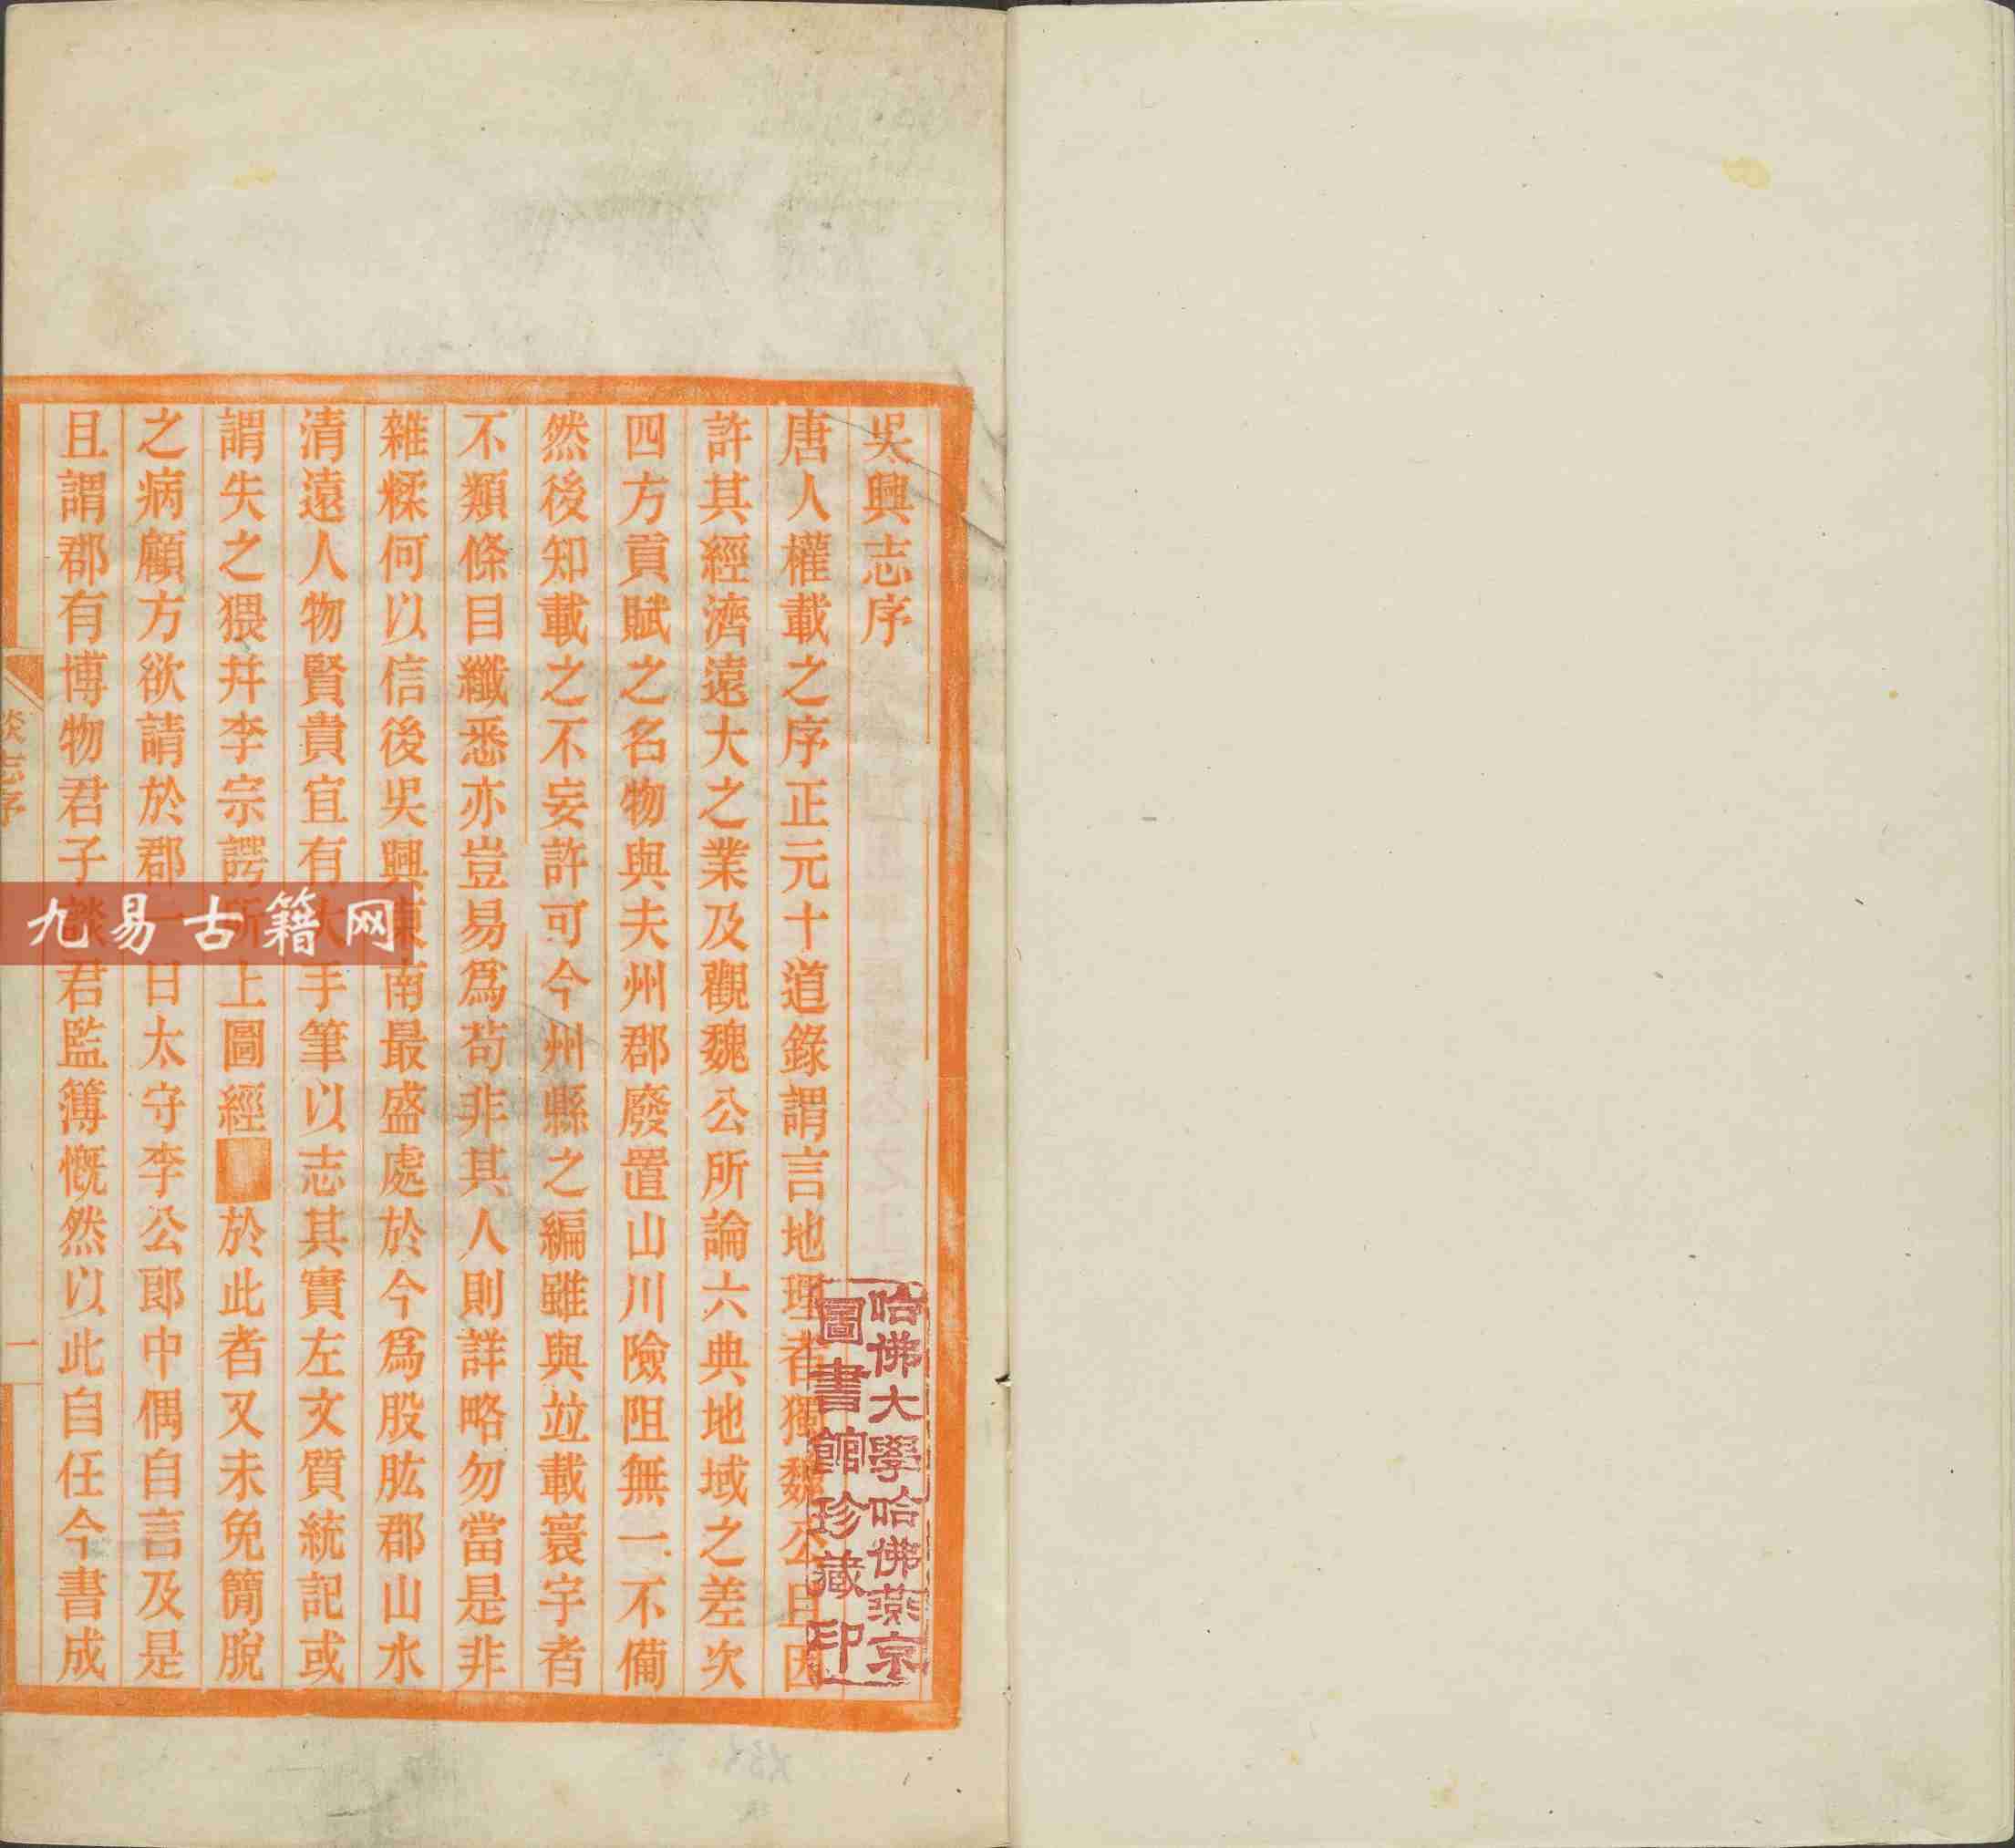 吳興志序
唐人權載之序正元十道錄謂言地理者獨魏公且因
許其經濟遠大之業及觀魏公所論六典地域之差次
四方貢賦之名物與夫州郡廢置山川險阻無一不備
然後知載之不妄許可今州縣之編雖與竝載寰宇者
不類條目纖悉亦豈易爲苟非其人則詳略勿當是非
雜糅何以信後吳興東南最盛處於今爲股肱郡山水
清遠人物賢貴宜有大手筆以志其實左文質統記或
謂失之猥幷李宗諤所上圖經於此者又未免簡脫
之病顧方欲請於郡一日太守李公郎中偶自言及是
且謂郡有博物君子談君監簿慨然以此自任今書成
談志序
一
哈佛大學哈佛燕京
圖書館珍藏印
九易古籍网